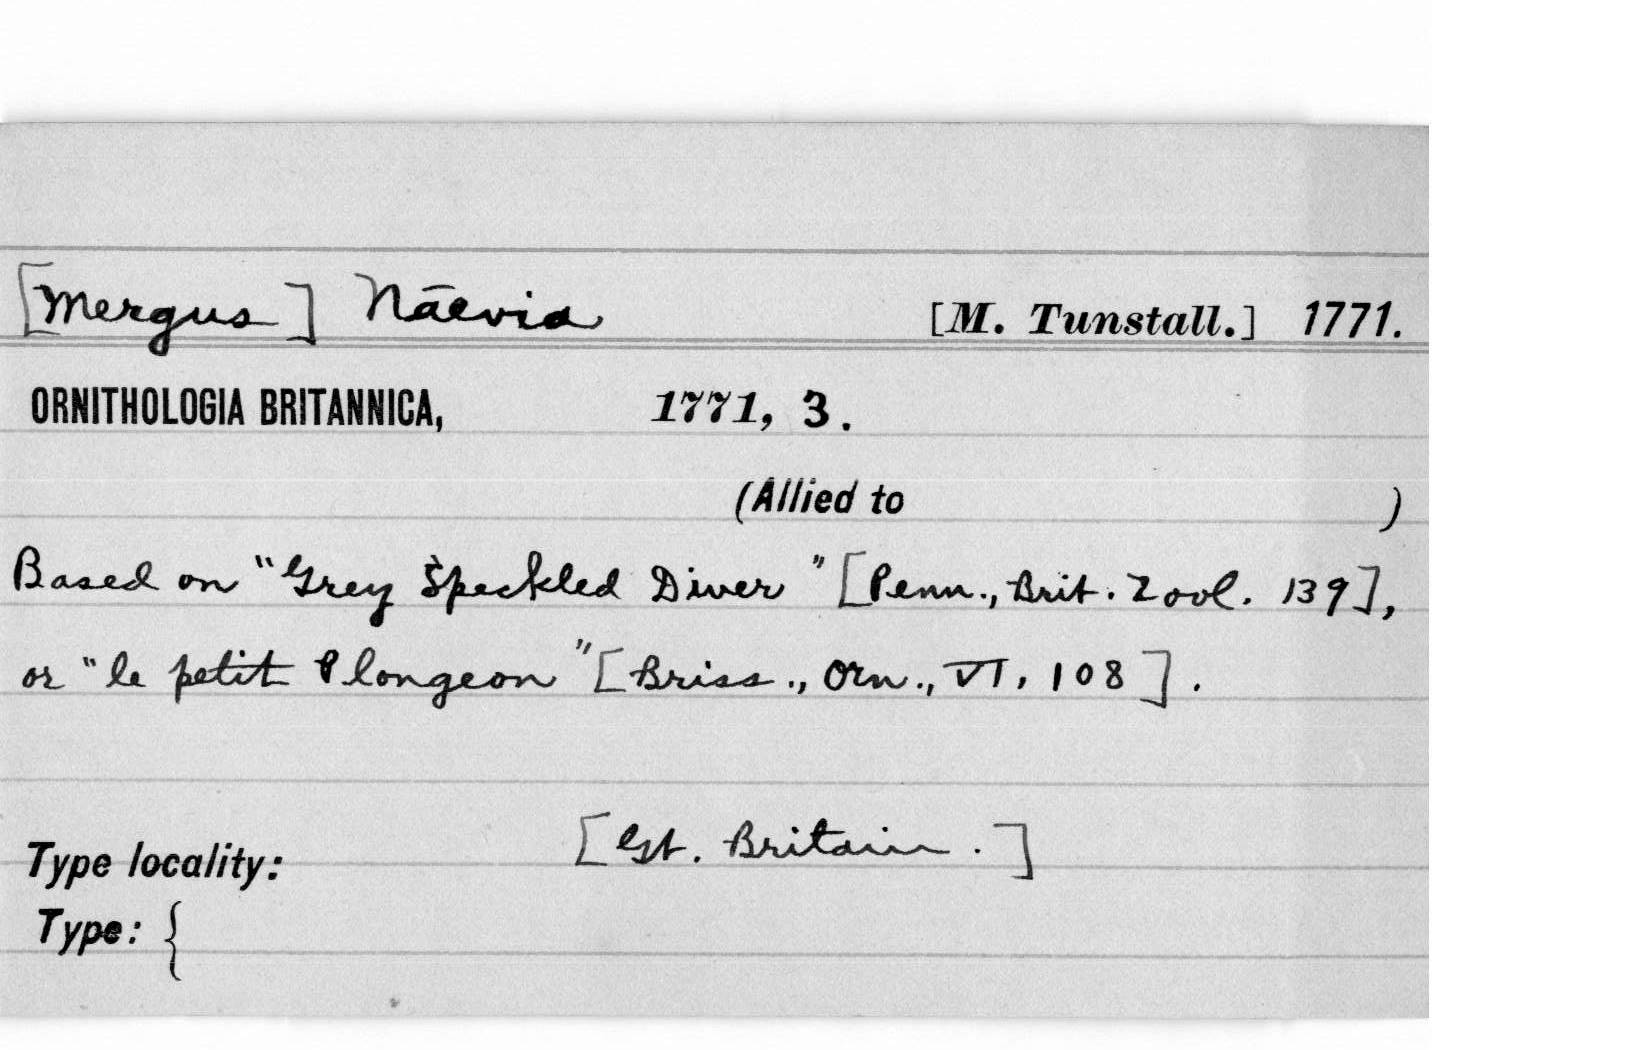 [Mergus] Nāevia [M. Tunstall.] 1771.
ORNITHOLOGIA BRITANNICA, 1771, 3.
(Allied to )
Based on "Grey Speckled Diver" [Penn., Brit. Zool. 139],
or "le petit Plongeon" [Briss., Orn., VI, 108].
Type locality: [Gt. Britain.]
Type: {